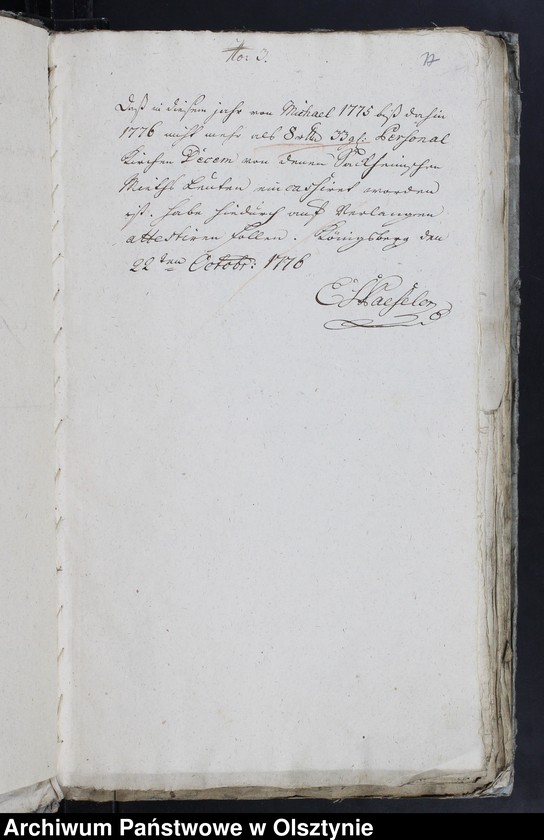 No: 3.
77
Daß in diesem jahr von Michael 1775 biß dahin
1776 nicht mehr als 8 rthl 33 gl: Personal
Kirchen Decem von denen Sackheimschen
Mieths Leuten eincassiret worden
ist. habe hiedurch auf Verlangen
attestiren sollen. Königsberg den
22ten Octobr: 1776
Archiwum Państwowe w Olsztynie